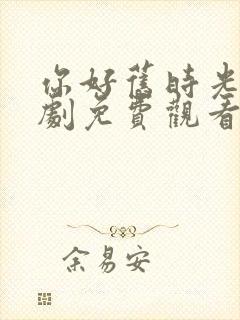 你好舊時光
劇免費觀看
余易安